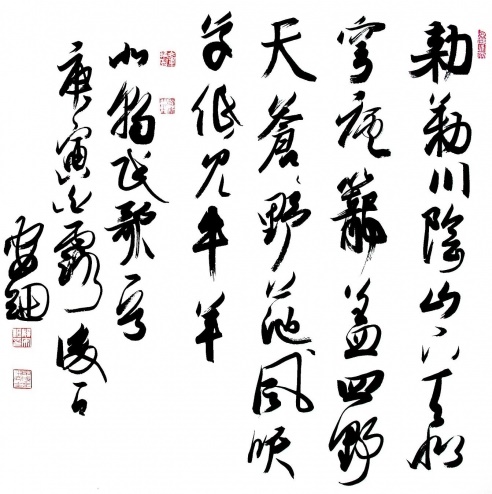 敕勒川陰山下天似
穹庐籠盖四野
天蒼野茫風吹
草低見牛羊
北朝民歌
庚寅露後